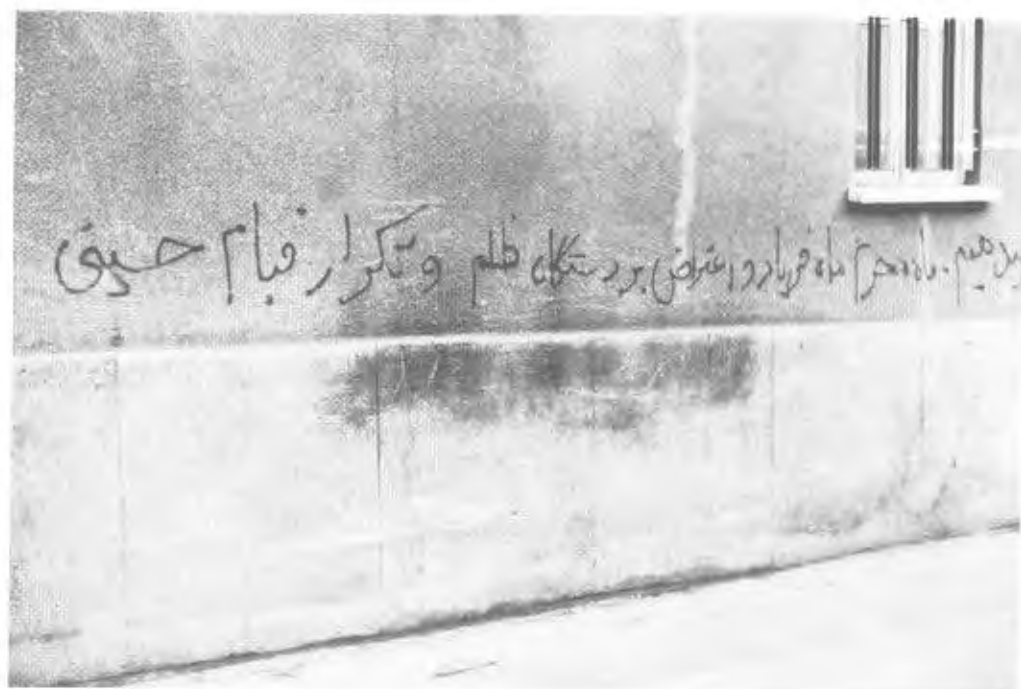 بدهیم. ماه محرم ماه فریاد و اعتراض بر دستگاه ظلم و تکرار قیام حسینی